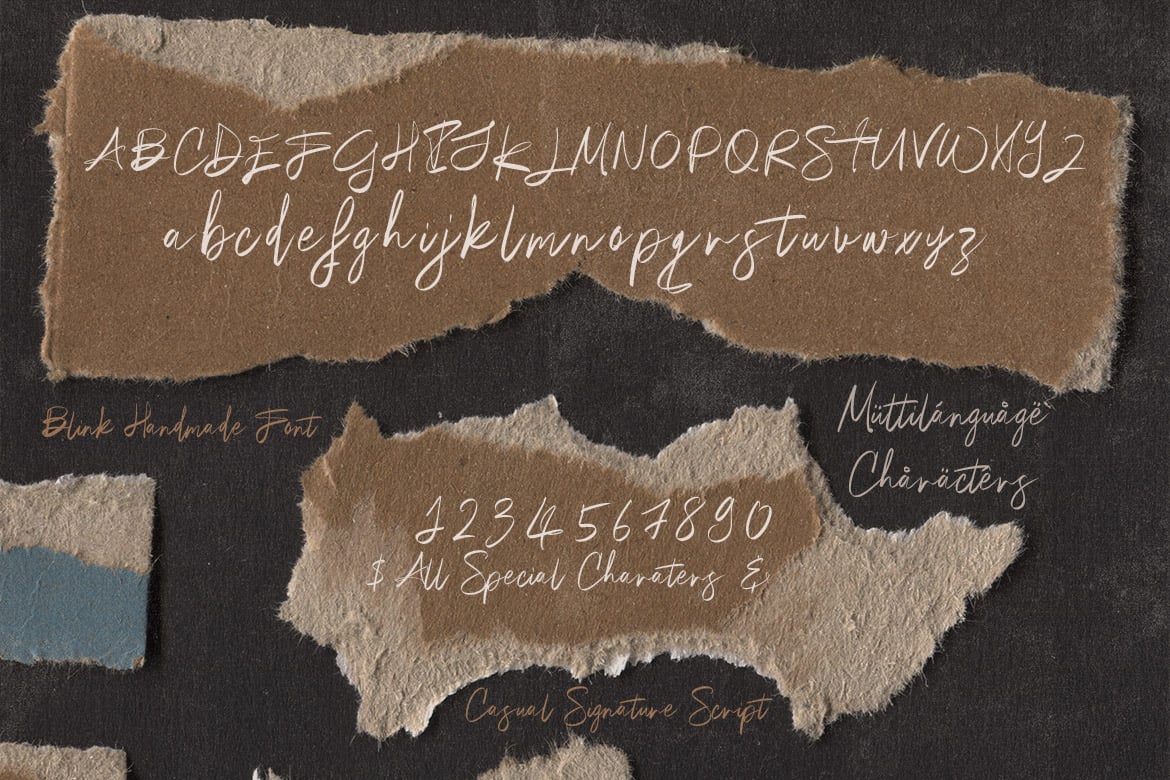 ABCDEFGHIJKLMNOPQRSTUVWXYZ
abcdefghijklmnopqrstuvwxyz
Blink Handmade Font
Müttilánguågë`
Chåräctêrs
1234567890
$ All Special Charaters &
Casual Signature Script